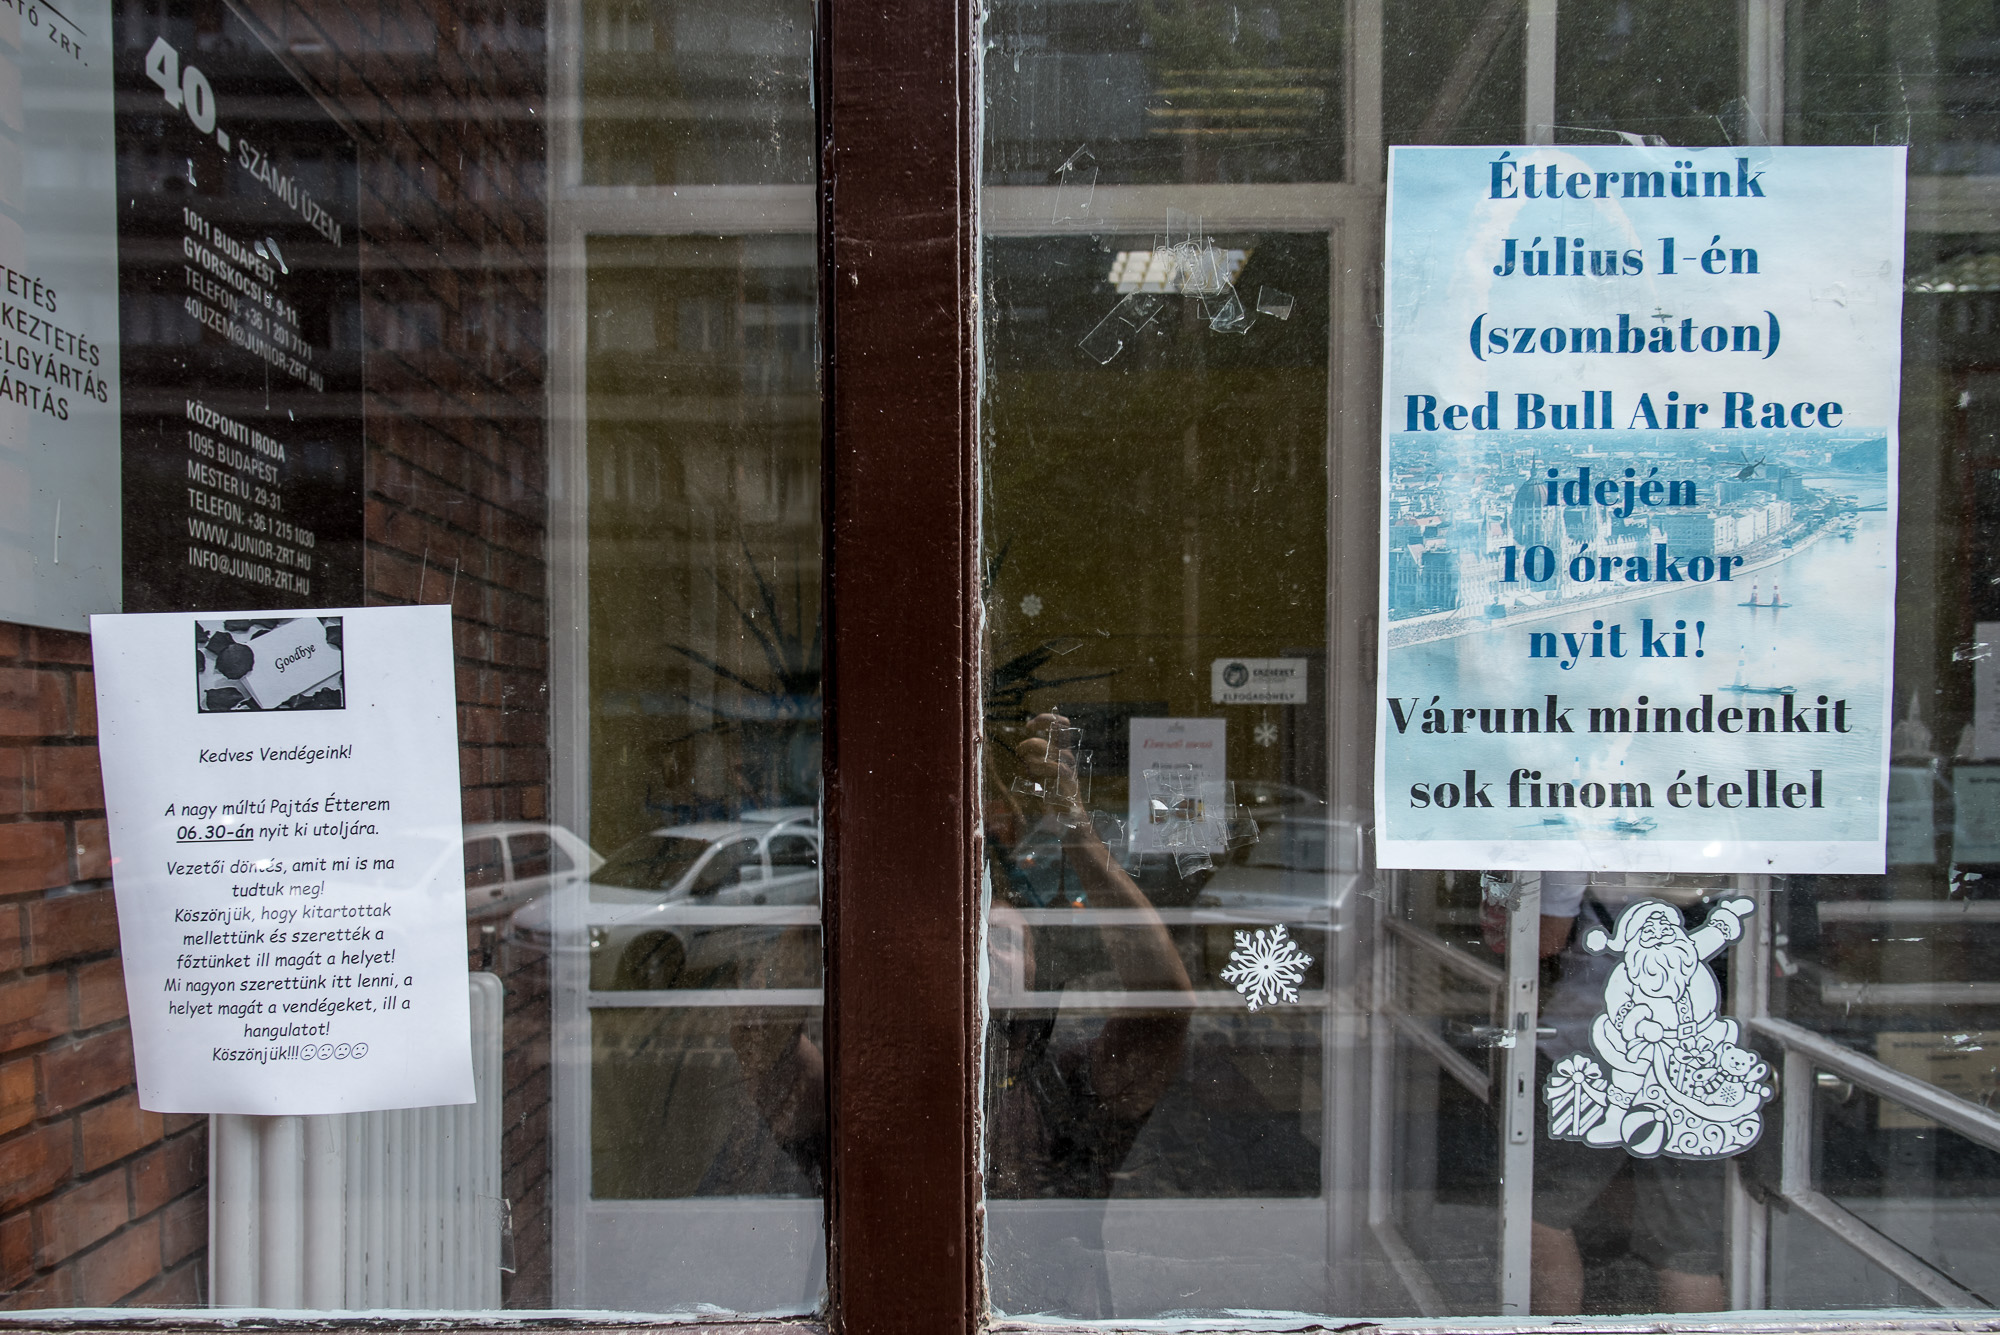 ATÓ ZRT.
TETÉS
KEZTETÉS
ELGYÁRTÁS
ÁRTÁS
40. SZÁMÚ ÜZEM
1011 BUDAPEST,
GYORSKOCSI U. 9-11.
TELEFON: +36 1 201 7171
40UZEM@JUNIOR-ZRT.HU
KÖZPONTI IRODA
1095 BUDAPEST,
MESTER U. 29-31.
TELEFON: +36 1 215 1030
WWW.JUNIOR-ZRT.HU
INFO@JUNIOR-ZRT.HU
Goodbye
Kedves Vendégeink!
A nagy múltú Pajtás Étterem
06.30-án nyit ki utoljára.
Vezetői döntés, amit mi is ma
tudtuk meg!
Köszönjük, hogy kitartottak
mellettünk és szerették a
főztünket ill magát a helyet!
Mi nagyon szerettünk itt lenni, a
helyet magát a vendégeket, ill a
hangulatot!
Köszönjük!!!☹☹☹☹
ERZSÉBET
ELFOGADÓHELY
Éttermünk
Július 1-én
(szombaton)
Red Bull Air Race
idején
10 órakor
nyit ki!
Várunk mindenkit
sok finom étellel